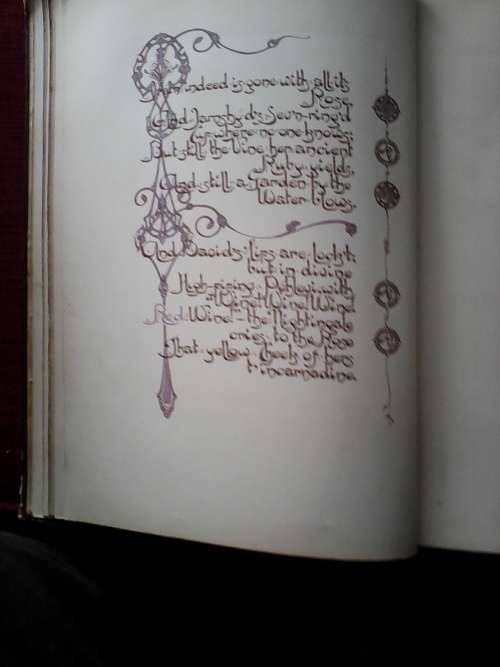 Iram indeed is gone with all its
Rose,
And Jamshyd's Sev'n-ring'd
Cup where no one knows;
But still the Vine her ancient
Ruby yields,
And still a Garden by the
Water blows.
And David's Lips are lock't;
but in divine
High-piping Pehlevi, with
"Wine! Wine! Wine!
Red Wine!"—the Nightingale
cries to the Rose
That yellow Cheek of hers
t'incarnadine.